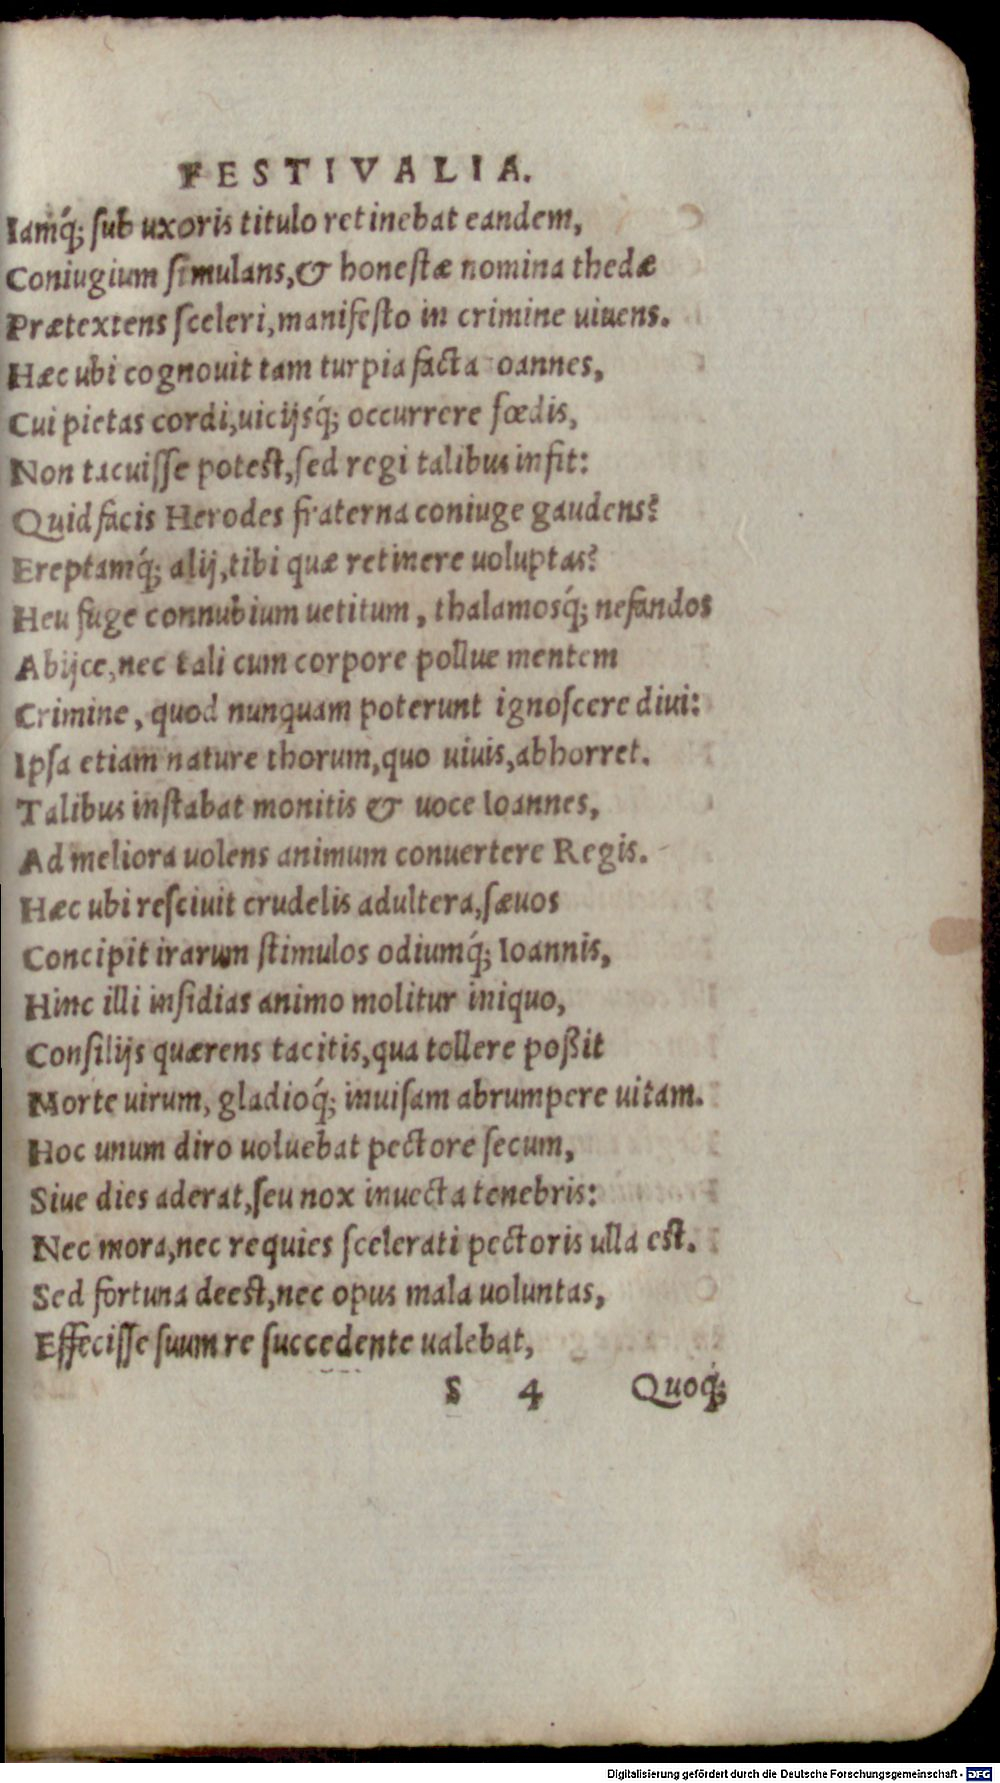 FESTIVALIA.
Iamq́; ſub uxoris titulo retinebat eandem,
Coniugium ſimulans,& honeſtæ nomina thedæ
Prætextens ſceleri,manifeſto in crimine uiuens.
Hæc ubi cognouit tam turpia facta oannes,
Cui pietas cordi,uicijsq́; occurrere fœdis,
Non tacuiſſe poteſt,ſed regi talibus infit:
Quid facis Herodes fraterna coniuge gaudens?
Ereptamq́; alij,tibi quæ retinere uoluptas?
Heu fuge connubium uetitum, thalamosq́; nefandos
Abijce,nec tali cum corpore pollue mentem
Crimine, quod nunquam poterunt ignoſcere diui:
Ipſa etiam nature thorum,quo uiuis,abhorret.
Talibus inſtabat monitis & uoce Ioannes,
Ad meliora uolens animum conuertere Regis.
Hæc ubi reſciuit crudelis adultera,ſæuos
Concipit irarum ſtimulos odiumq́; Ioannis,
Hinc illi inſidias animo molitur iniquo,
Conſilijs quærens tacitis,qua tollere poßit
Morte uirum, gladioq́; inuiſam abrumpere uitam.
Hoc unum diro uoluebat pectore ſecum,
Siue dies aderat,ſeu nox inuecta tenebris:
Nec mora,nec requies ſcelerati pectoris ulla eſt.
Sed fortuna deeſt,nec opus mala uoluntas,
Effeciſſe ſuum re ſuccedente ualebat,
S 4 Quoq́;
Digitalisierung gefördert durch die Deutsche Forschungsgemeinschaft - DFG